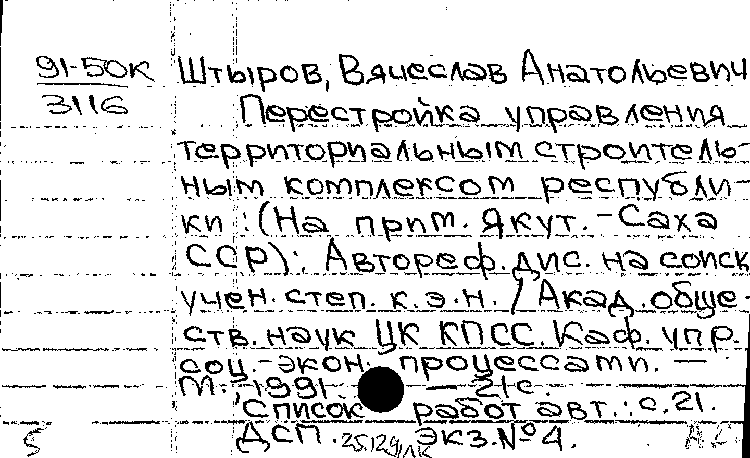 91-50К
3116
Штыров, Вячеслав Анатольевич
Перестройка управления
территориальным строитель-
ным комплексом республи-
ки : (На прим. Якут. - Саха
ССР) : Автореф. дис. на соиск.
учен. степ. к.э.н. / Акад. обще-
ств. наук ЦК КПСС. Каф. упр.
соц.-экон. процессами. —
М., 1991. — 21с.
Список работ авт.: с. 21.
ДСП. Экз. № 4.
5